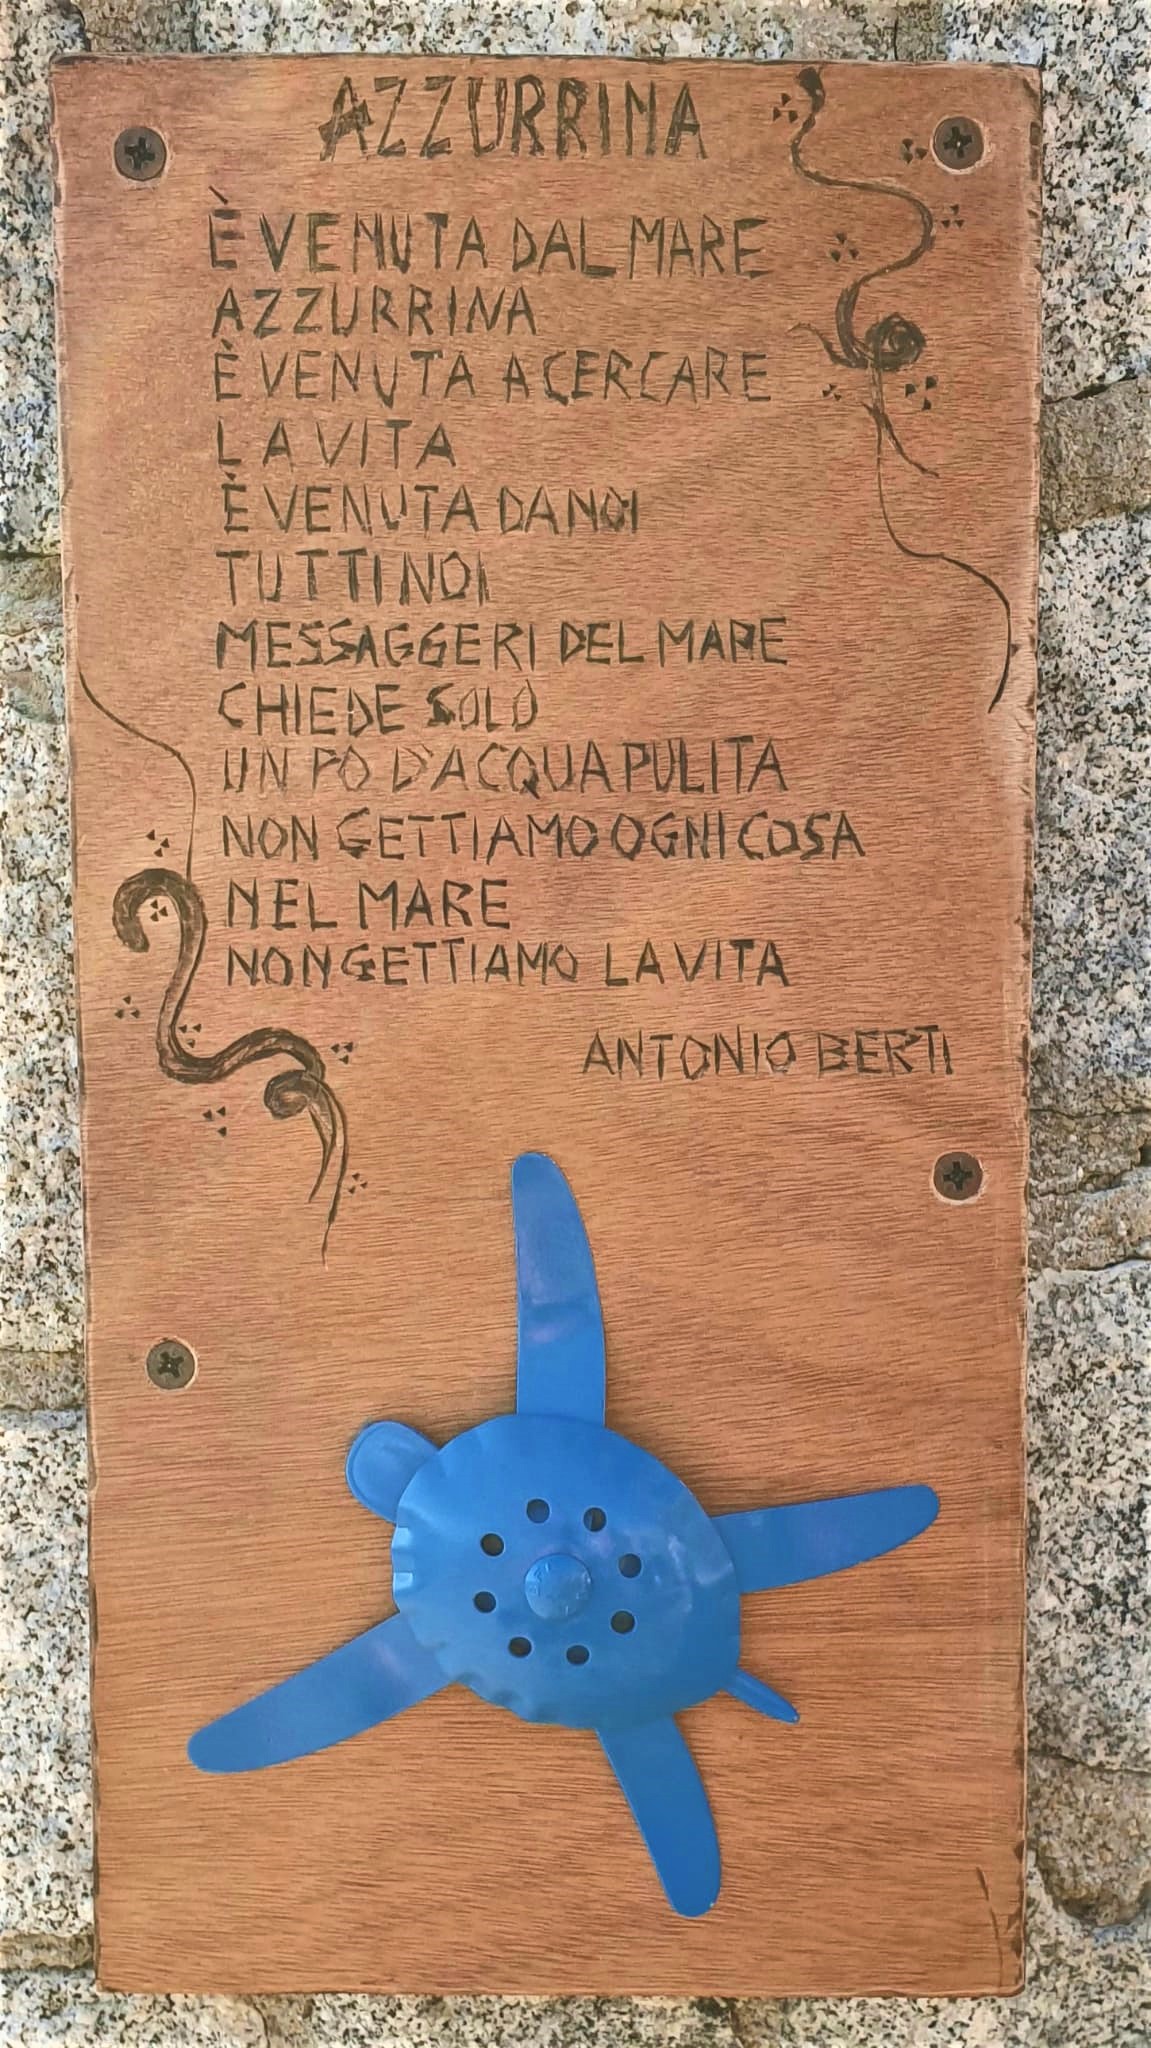 AZZURRINA
È VENUTA DAL MARE
AZZURRINA
È VENUTA A CERCARE
LA VITA
È VENUTA DA NOI
TUTTI NOI
MESSAGGERI DEL MARE
CHIEDE SOLO
UN PO D'ACQUA PULITA
NON GETTIAMO OGNI COSA
NEL MARE
NON GETTIAMO LA VITA
ANTONIO BERTI